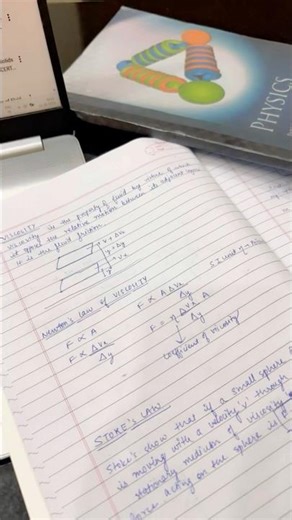 VISCOSITY
Viscosity is the property of fluid by virtue of which
it opposes the relative motion between its adjacent layers
it is the fluid friction.
Vx + ΔVx
Δy
Vx
Newton's law of VISCOSITY
F ∝ A
F ∝ ΔVx / Δy
F ∝ A ΔVx / Δy
F = η ΔVx / Δy A
coefficient of viscosity
S.I. unit η →
STOKE'S LAW
Stoke's show that if a small sphere
is moving with a velocity 'v' through
stationary medium of viscosity
force acting on the sphere is
PHYSICS